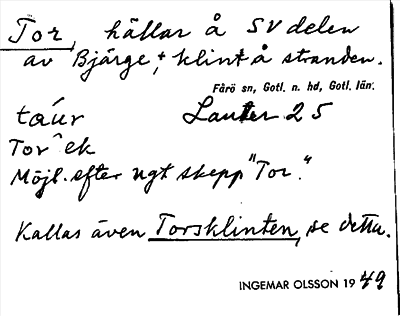 Tor, hällar å SV delen
av Bjärge, + klint å stranden.
Fårö sn, Gotl. n. hd, Gotl. län.
taúr Lauter 25
Tor^ek
Möjl. efter ngt skepp "Tor."
Kallas även Torsklinten, se detta.
INGEMAR OLSSON 1949